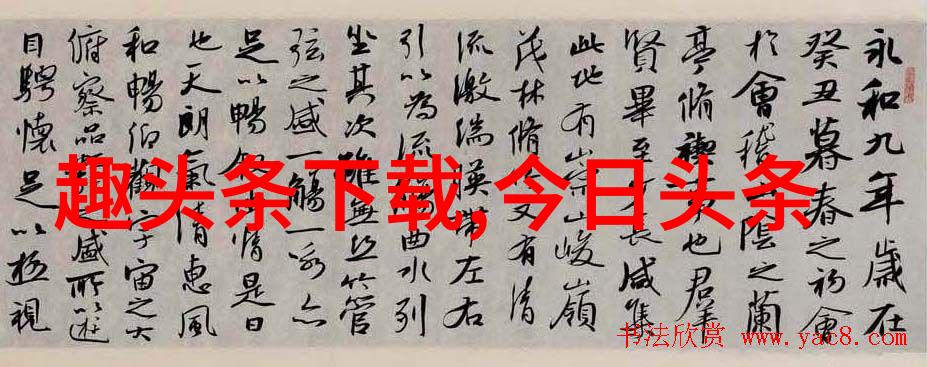 永和九年歲在
癸丑暮春之初會
於會稽山陰之蘭
亭脩禊事也群
賢畢至少長咸集
此地有崇山峻嶺
茂林脩竹又有清
流激湍暎帶左右
引以為流觴曲水列
坐其次雖無絲竹管
弦之盛一觴一詠亦
足以暢敘幽情是日
也天朗氣清惠風
和暢仰觀宇宙之大
俯察品類之盛所以遊
目騁懷足以極視
趣头条下载,今日头条
书法欣赏 www.yac8.com